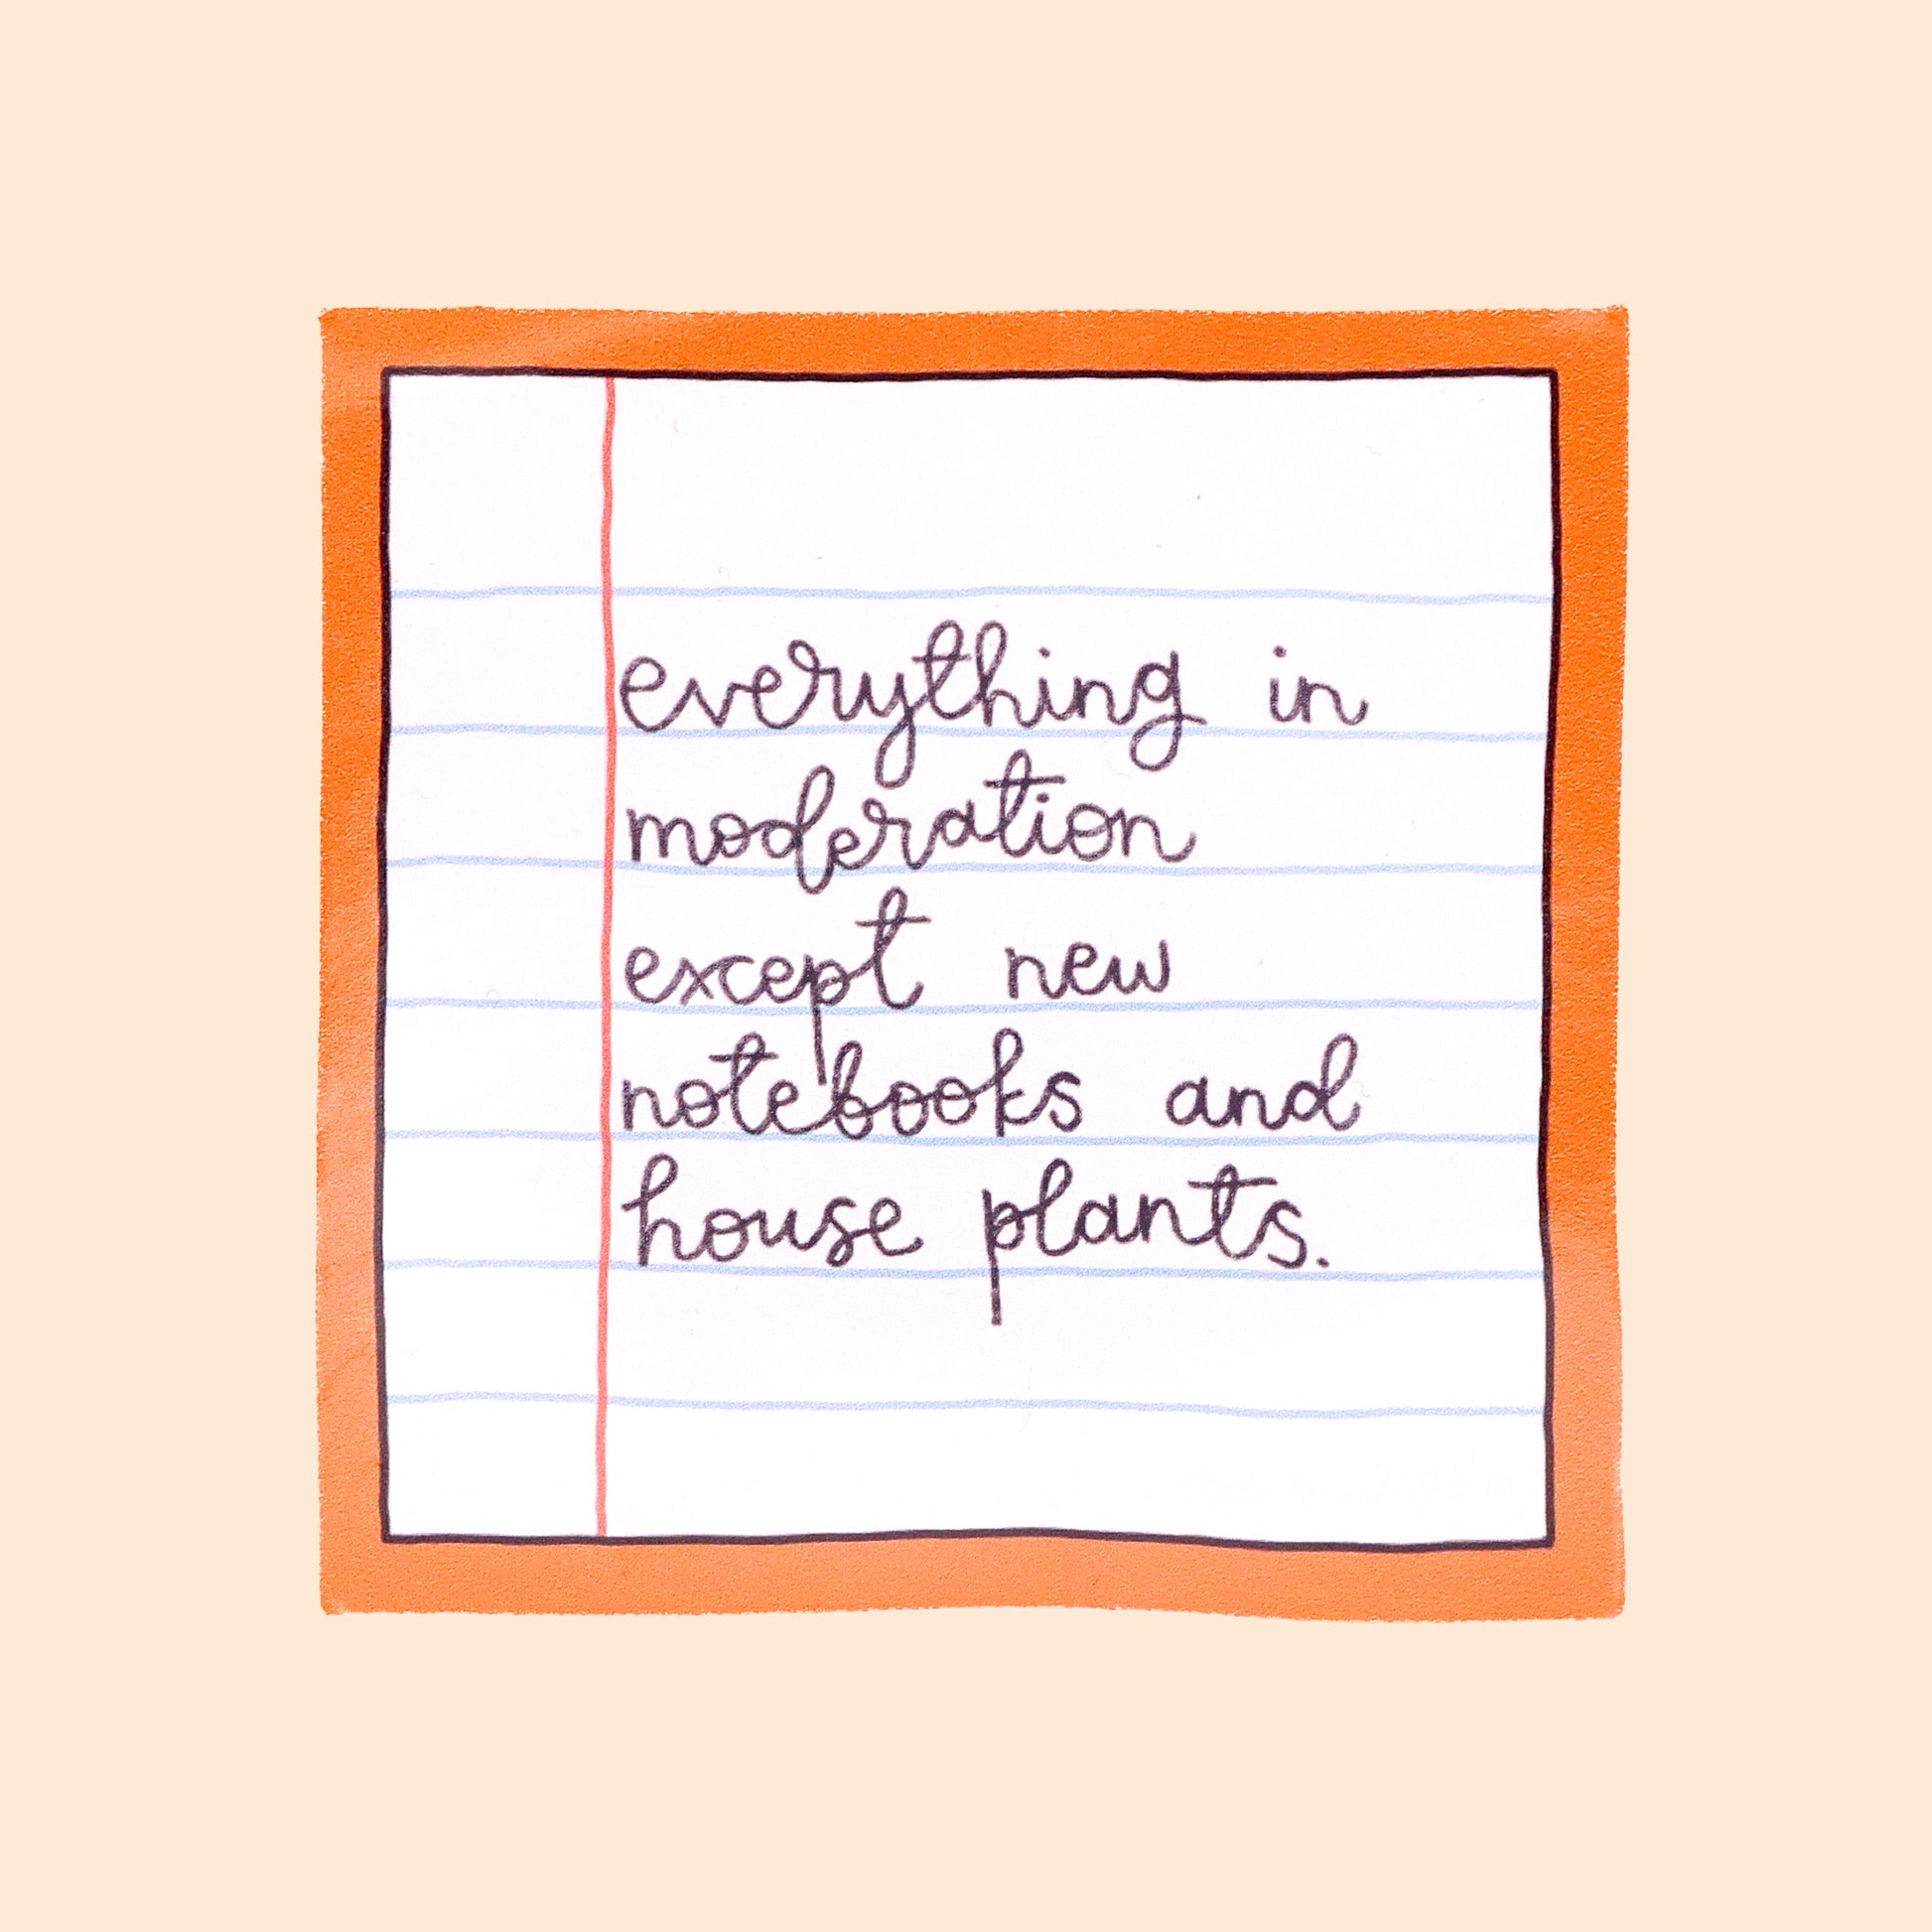 everything in
moderation
except new
notebooks and
house plants.